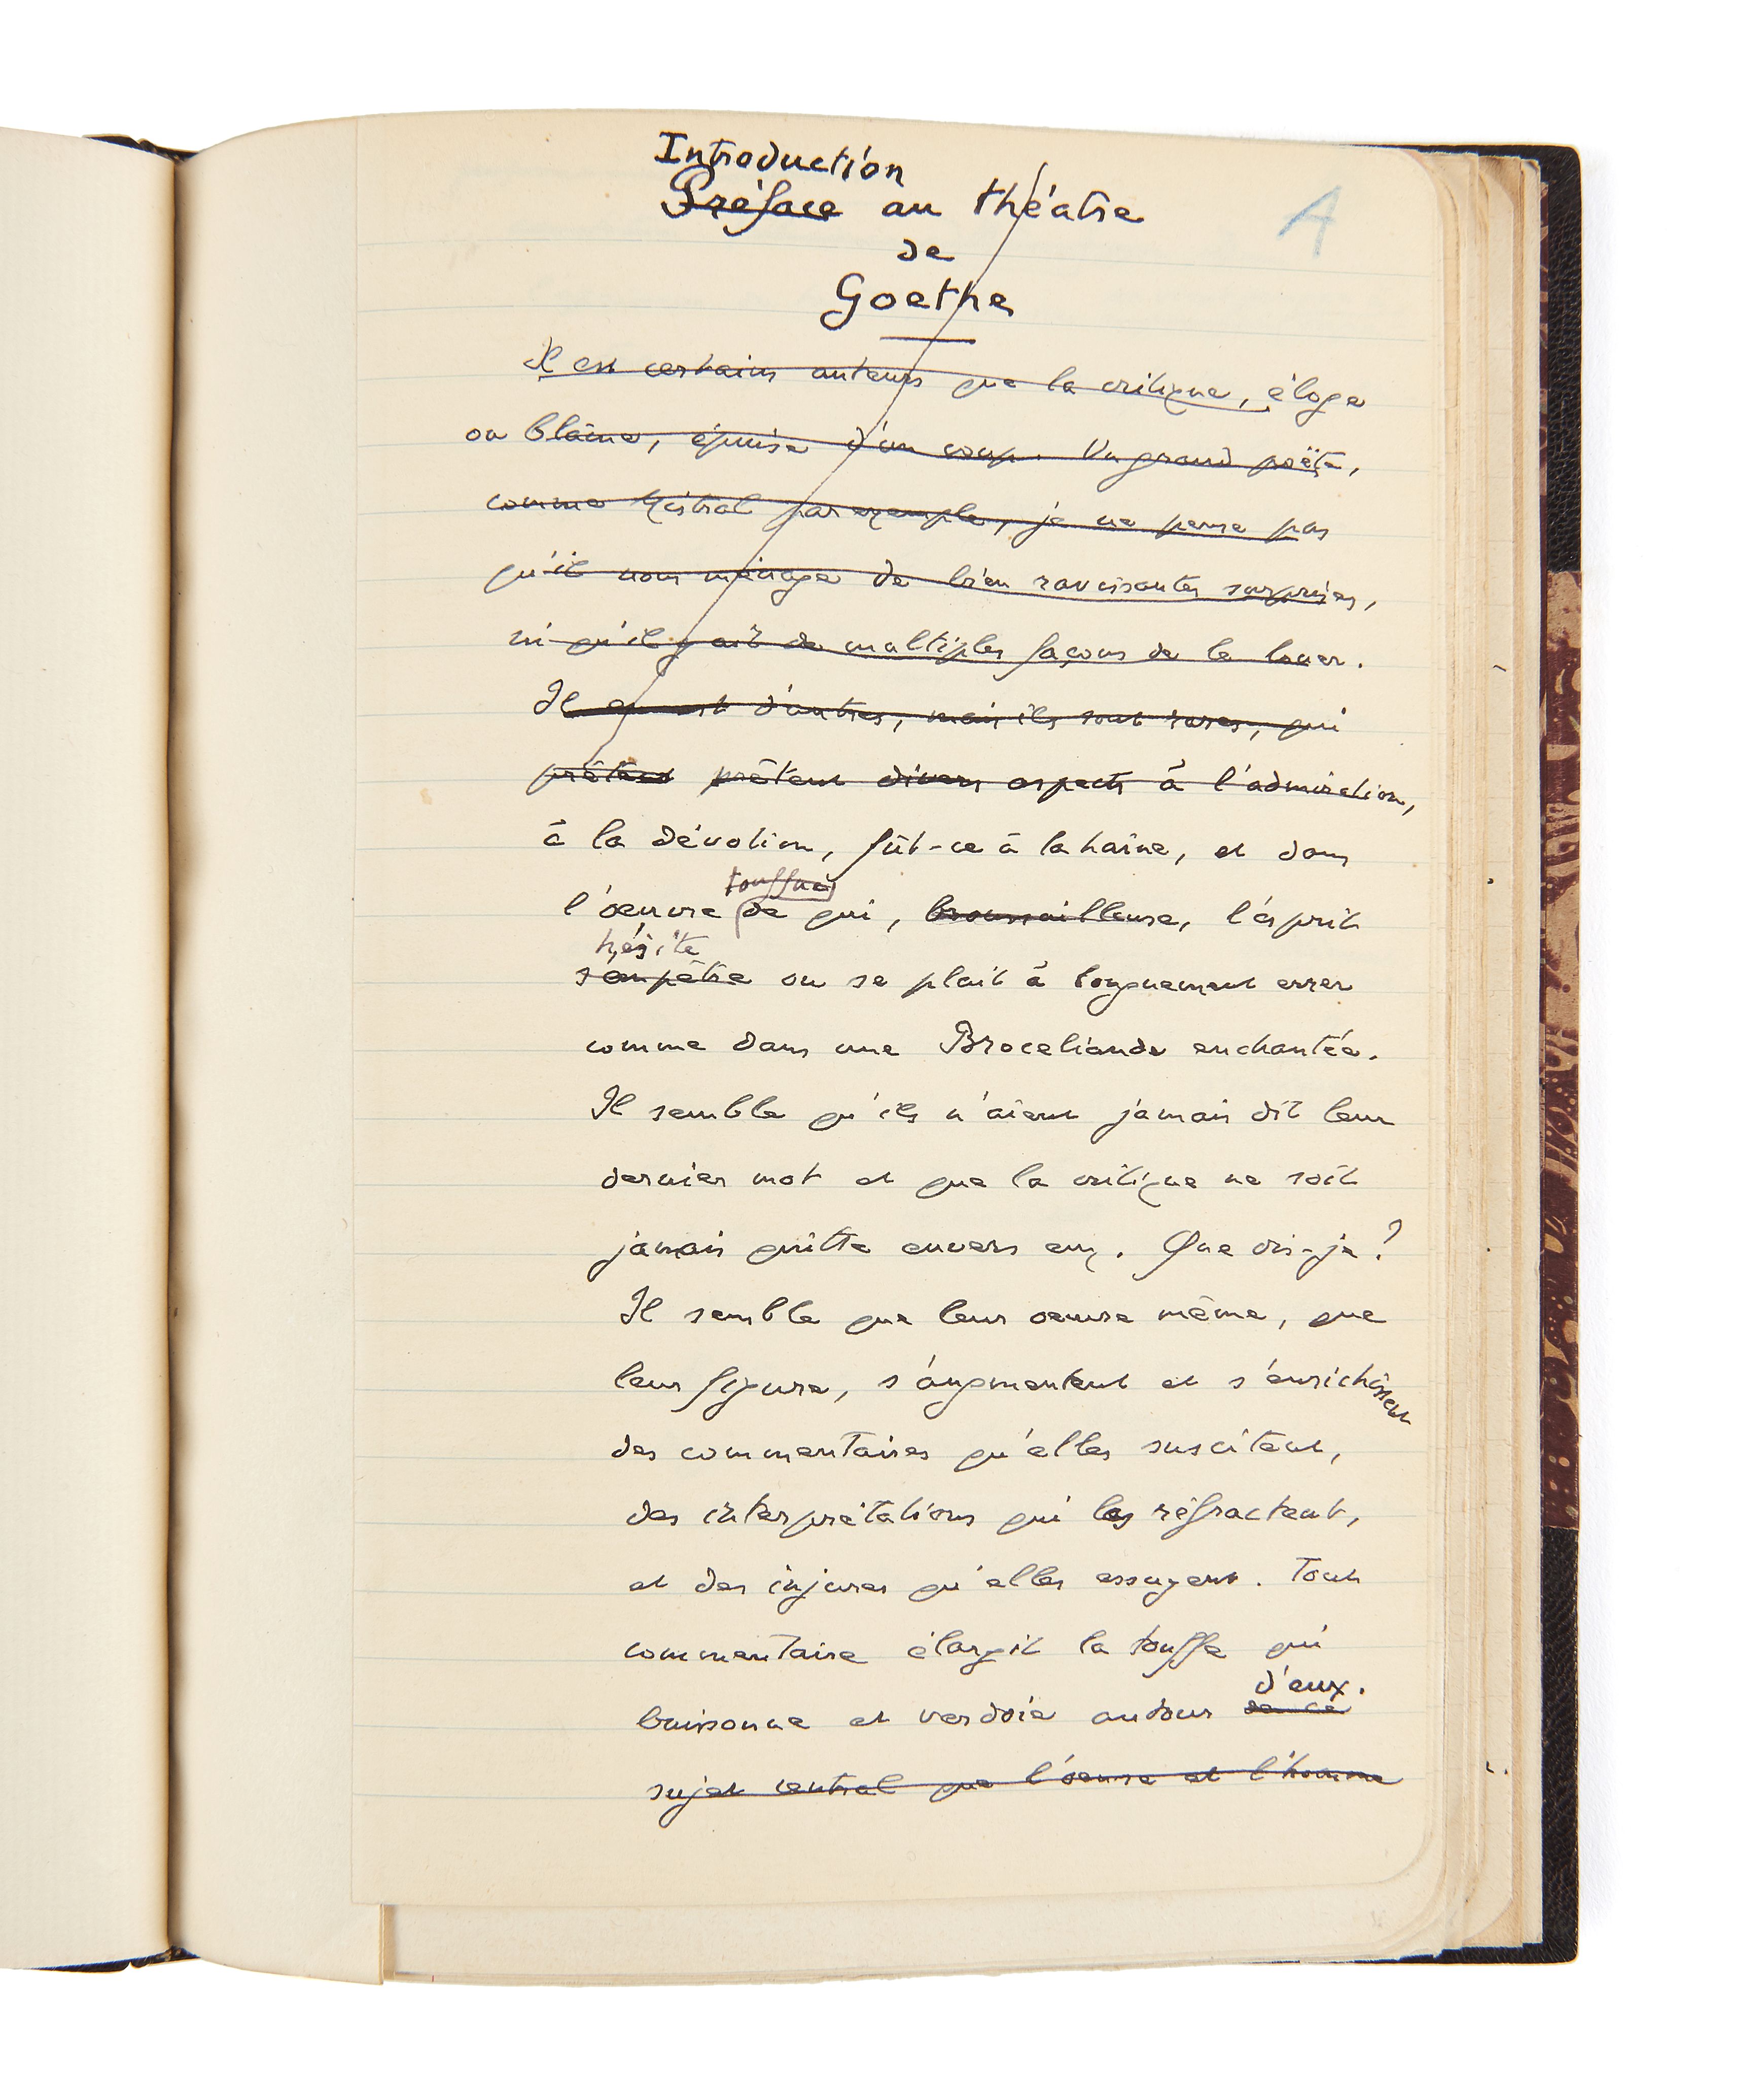 Introduction
Préface au théâtre
A
de
Goethe
Il est certains auteurs que la critique, éloge
ou blâme, épuise d'un coup. Un grand poëte,
comme Mistral par exemple, je ne pense pas
qu'il nous ménage de bien ravissantes surprises,
ni qu'il y ait de multiples façons de le louer.
Il en est d'autres, mais ils sont rares, qui
prêtent prêtent divers aspects à l'admiration,
à la dévotion, fût-ce à la haine, et dans
touffue
l'œuvre de qui, broussailleuse, l'esprit
hésite
s'empêtre ou se plait à longuement errer
comme dans une Broceliande enchantée.
Il semble qu'ils n'aient jamais dit leur
dernier mot et que la critique ne soit
jamais quitte envers eux. Que dis-je?
Il semble que leur œuvre même, que
leur figure, s'augmentent et s'enrichissent
des commentaires qu'elles suscitent,
des interprétations qui les réfractent,
et des injures qu'elles essuyent. Tout
commentaire élargit la touffe qui
d'eux.
buissonne et verdoie autour de ce
sujet central que l'œuvre et l'homme